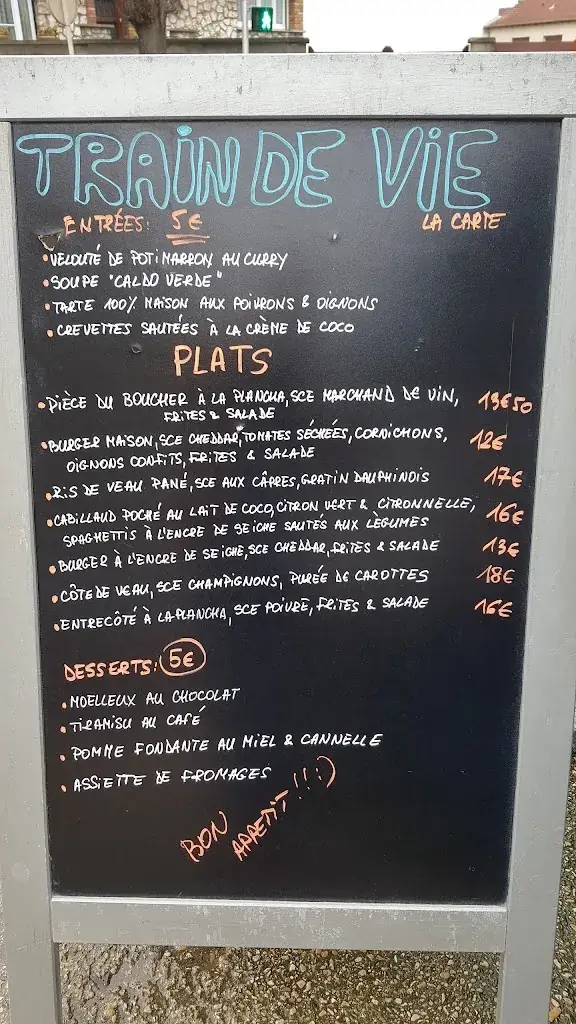 TRAIN DE VIE
ENTRÉES: 5€ LA CARTE
• VELOUTÉ DE POTIMARRON AU CURRY
• SOUPE "CALDO VERDE"
• TARTE 100% MAISON AUX POIVRONS & OIGNONS
• CREVETTES SAUTÉES À LA CRÈME DE COCO
PLATS
• PIÈCE DU BOUCHER À LA PLANCHA, SCE MARCHAND DE VIN, 13€50
FRITES & SALADE
• BURGER MAISON, SCE CHEDDAR, TOMATES SÉCHÉES, CORNICHONS, 12€
OIGNONS CONFITS, FRITES & SALADE
• RIS DE VEAU PANÉ, SCE AUX CÂPRES, GRATIN DAUPHINOIS 17€
• CABILLAUD POCHÉ AU LAIT DE COCO, CITRON VERT & CITRONNELLE, 16€
SPAGHETTIS À L'ENCRE DE SEICHE SAUTÉS AUX LÉGUMES
• BURGER À L'ENCRE DE SEICHE, SCE CHEDDAR, FRITES & SALADE 13€
• CÔTE DE VEAU, SCE CHAMPIGNONS, PURÉE DE CAROTTES 18€
• ENTRECÔTÉ À LA PLANCHA, SCE POIVRE, FRITES & SALADE 16€
DESSERTS: 5€
• MOELLEUX AU CHOCOLAT
• TIRAMISU AU CAFÉ
• POMME FONDANTE AU MIEL & CANNELLE
• ASSIETTE DE FROMAGES
BON
APPETIT!!:)